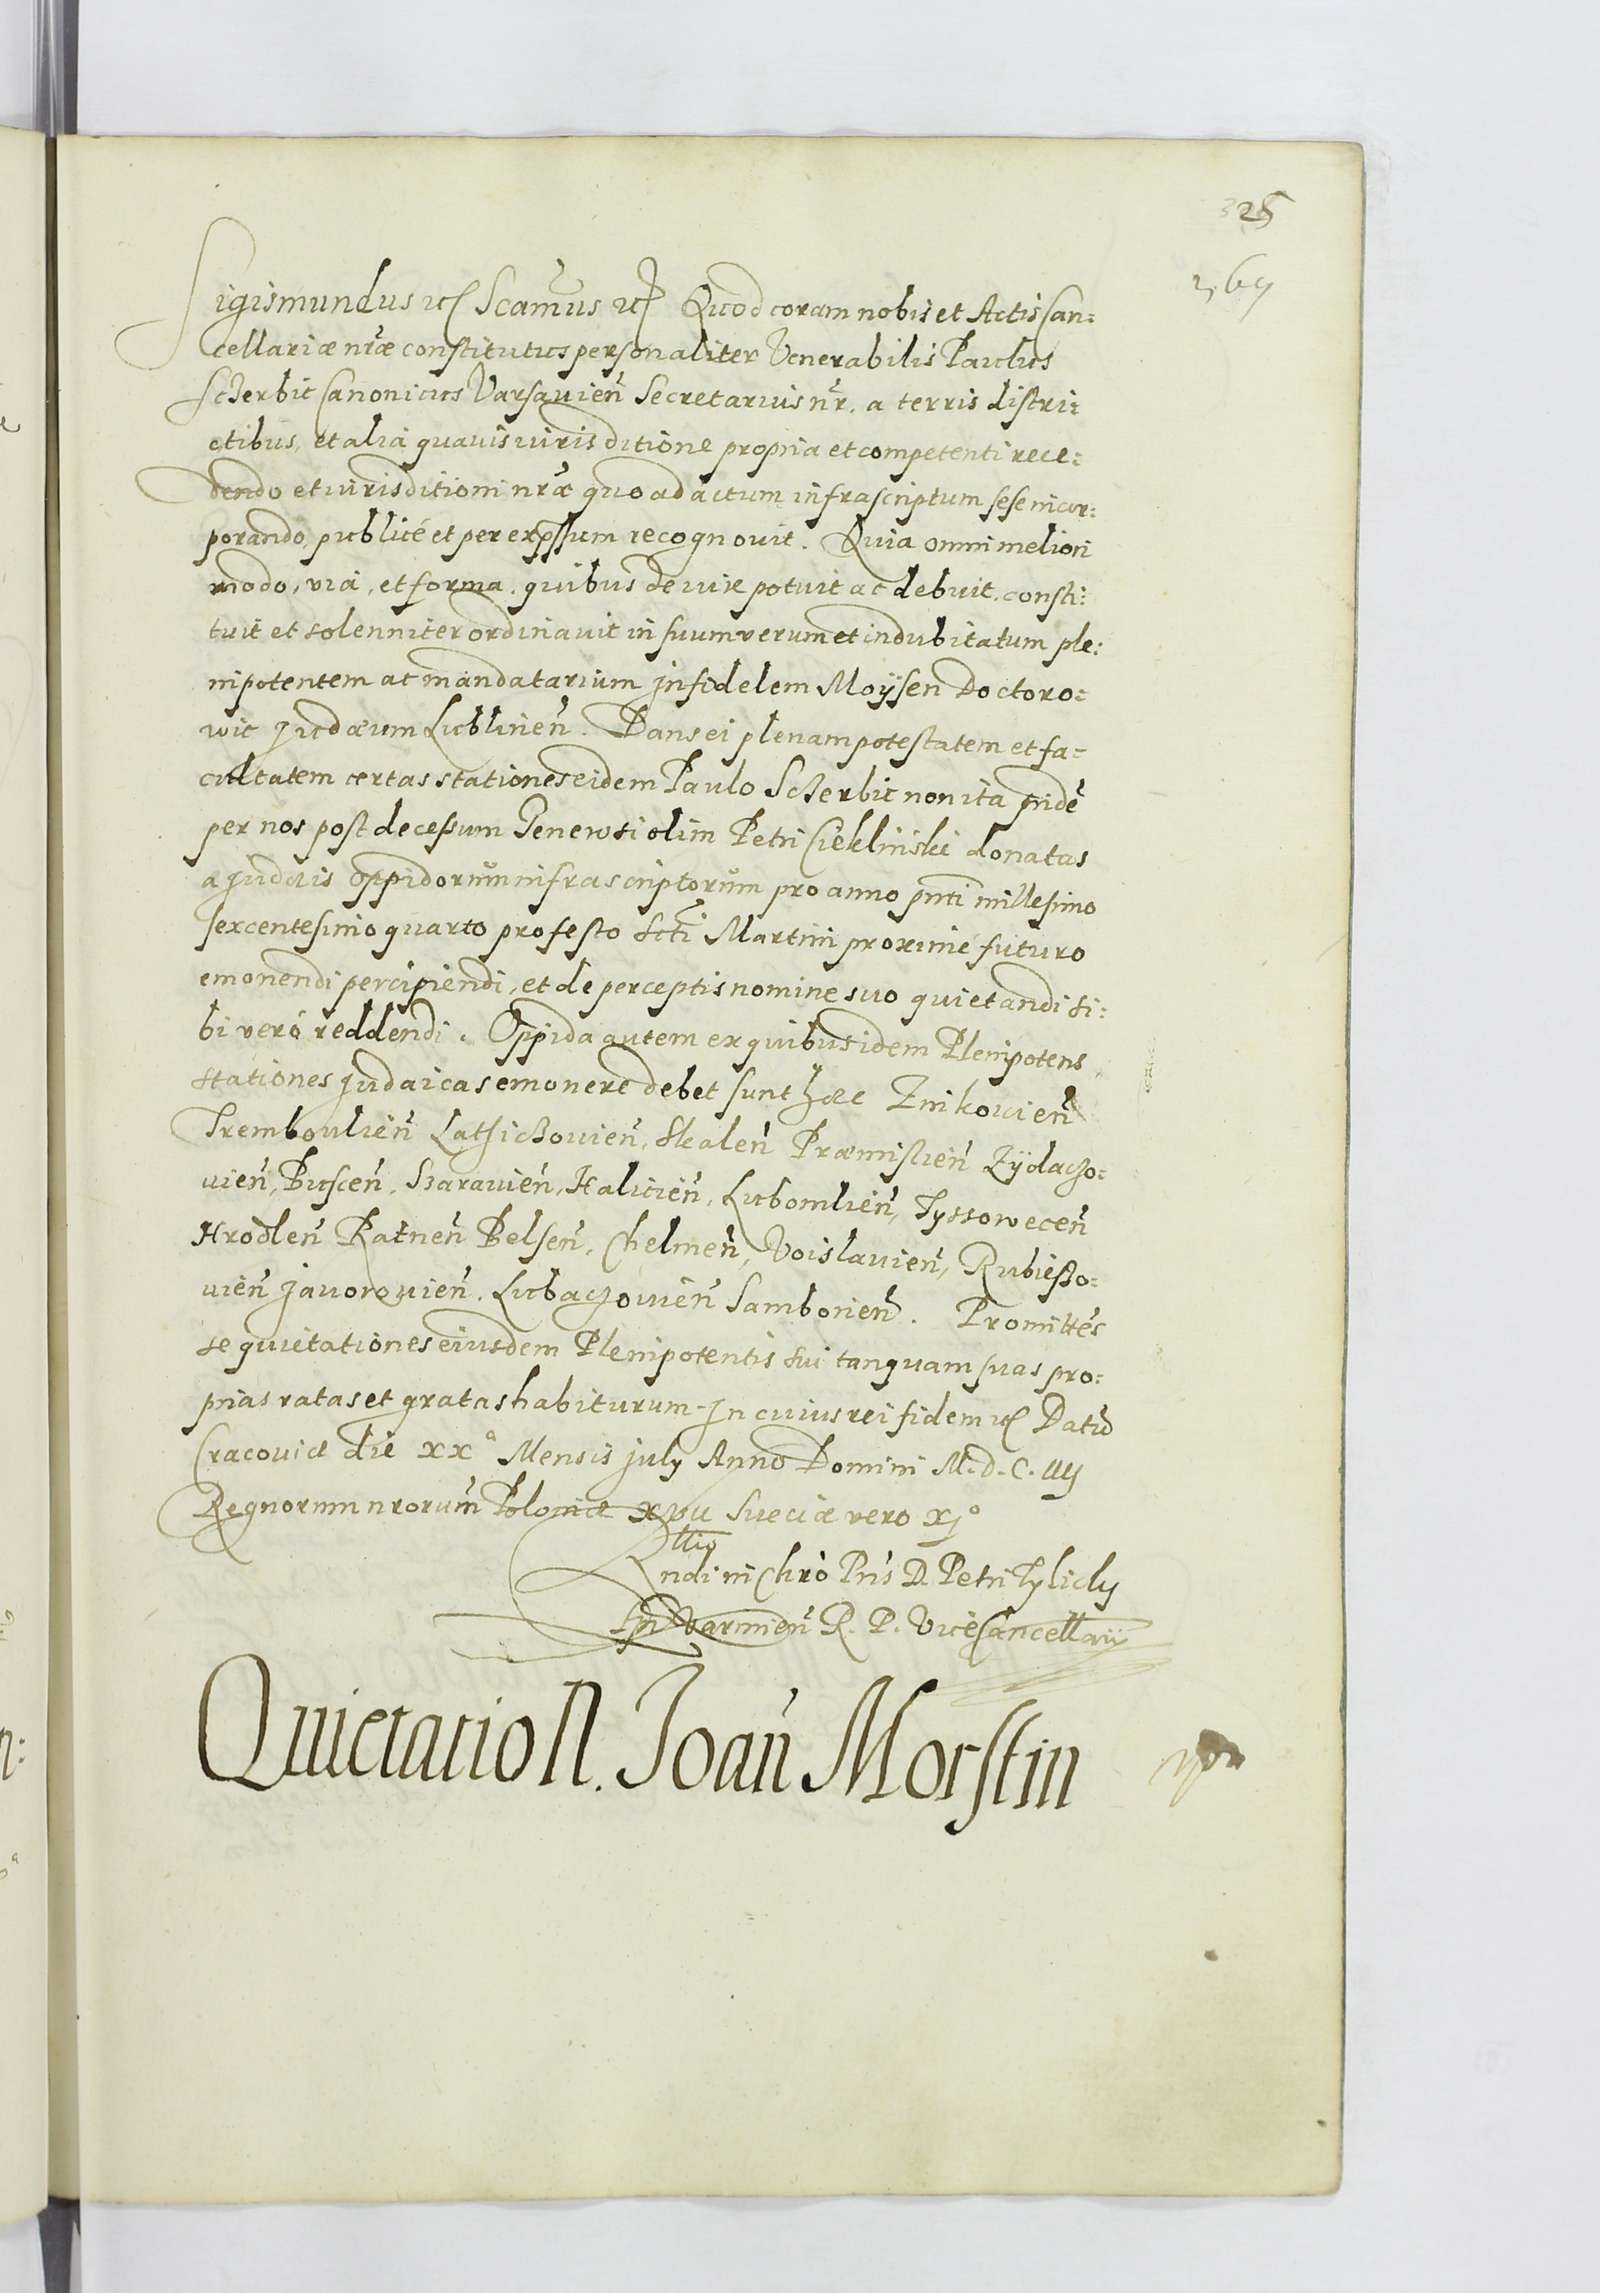 325
Sigismundus etc Scamus etc Quod coram nobis et Actis Can:
cellariæ nræ constitutus personaliter Venerabilis Paulus
Sczerbic Canonicus Varsavień Secretarius nr. a terris distri:
ctibus, et alia quavis iurisditione propria et competenti rece:
dendo et iurisditioni nræ quo ad actum infrascriptum sese incor:
porando, publicé et per expssum recognovit. Quia omni meliori
modo, via, et forma. quibus de iure potuit ac debuit. consti:
tuit et solenniter ordinavit in suum verum et indubitatum ple:
nipotentem ac mandatarium infidelem Moÿsen Doctoro:
wic judæum Lublinen̄. Dans ei plenam potestatem et fa=
cultatem certas stationes eidem Paulo Sczerbic non ita pridē
per nos post decessum Generosi olim Petri Ciekliński donatas
a judæis oppidorum infrascriptorum pro anno pnti millesimo
sexcentesimo quarto pro festo Scti Martini proximé futuro
emonendi percipiendi, et de perceptis nomine suo quietandi si:
bi veró reddendi. Oppida autem ex quibus idem Plenipotens
stationes judaicas emonere debet sunt hæc Znikovień
Trembovlień Lathiczovień, Skaleń Præmislień Zÿdaczo:
vień, Busceń, Szaravień, Haliciēn, Lubomlień, Tyssoweceń
Hrodleń Ratneń Belseń, Chelmeń, Voislavień, Rubieszo:
vień javorovień. Lubaczovień Samborień. Promittēs
se quietationes eiusdem Plenipotentis sui tanquam suas pro:
prias ratas et gratas habiturum. In cuius rei fidem etc Datū
Cracoviæ die xxa Mensis july Anno Domini M.D.C.iiij
Regnorum nrorum Poloniæ xvii Sueciæ vero xjo
Rndi in Chro Pris D. Petri Tylicky
Epi Varmień R. P. ViceCancellarij
Quietatio N. Joań Morstin